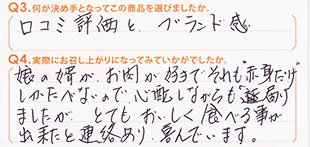 Q3.何が決め手となってこの商品を選びましたか。
口コミ評価と、ブランド感
Q4.実際にお召し上がりになってみていかがでしたか。
娘の婿が、お肉が好きでそれも"赤身だけ"
しかたべないので心配しながらも送り
ましたが、とてもおいしく食べる事が
出来たと連絡あり、喜んでいます。